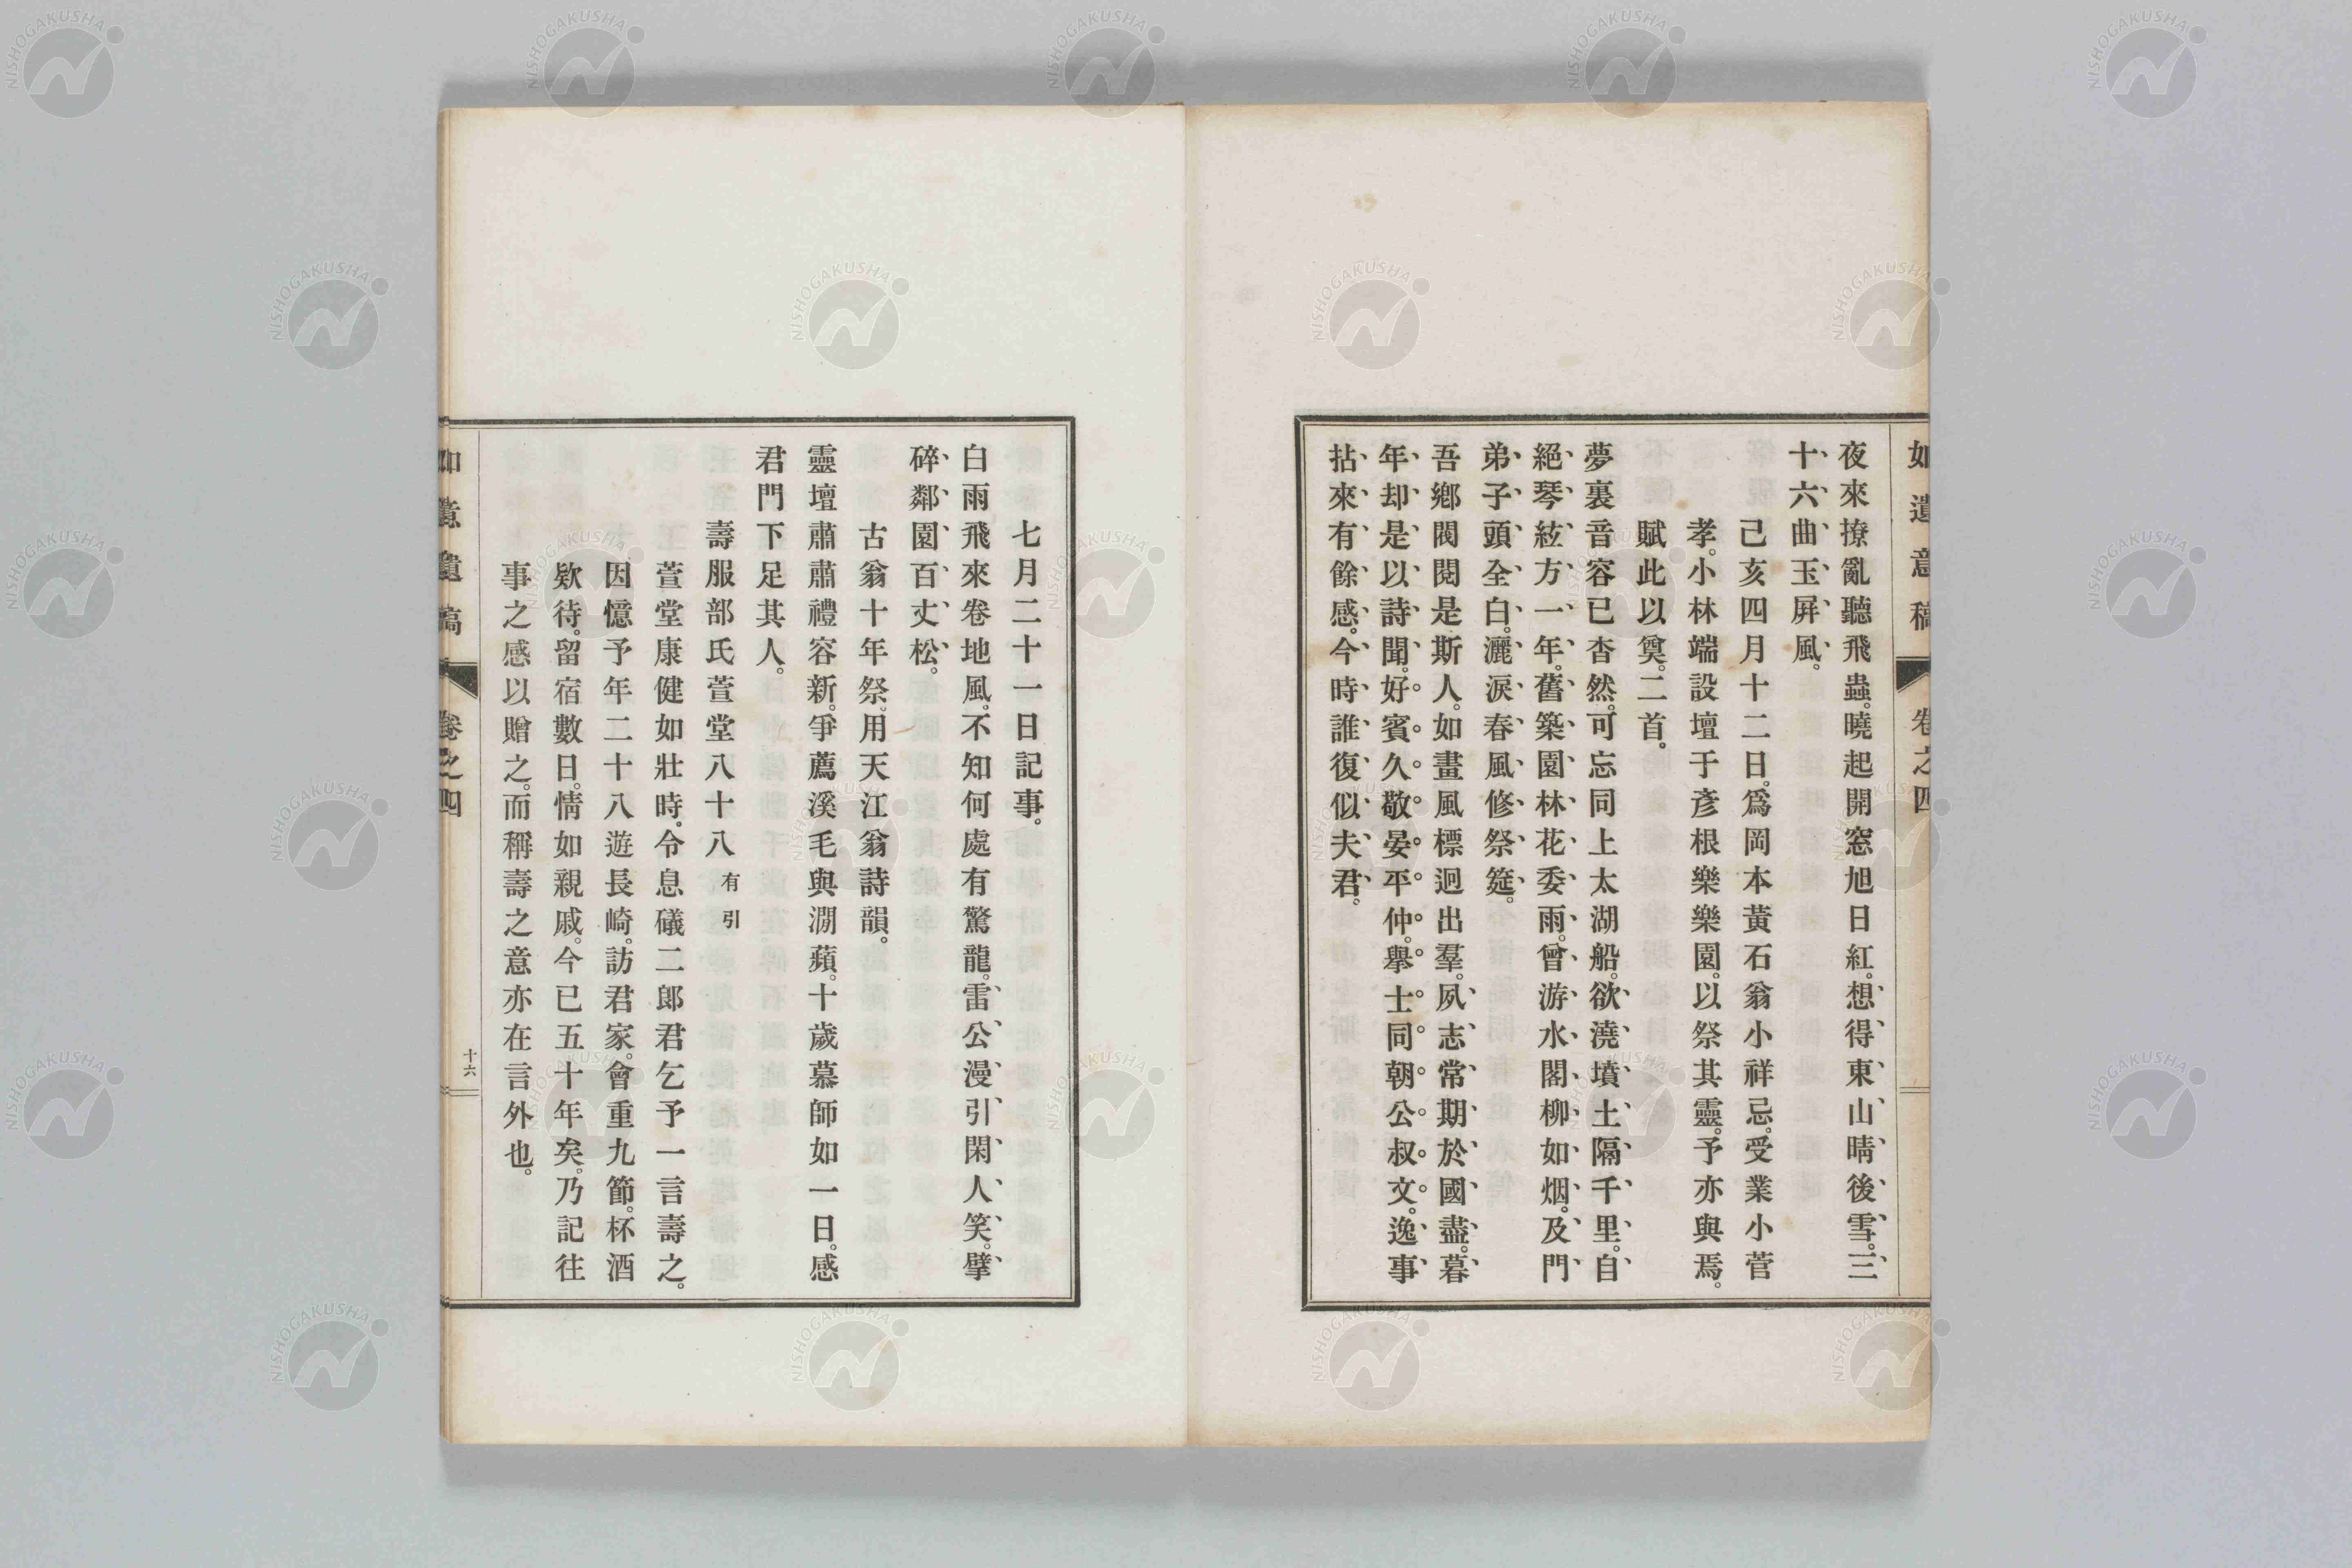 如意遺稿 卷之四
夜來撩亂聽飛蟲。曉起開窓旭日紅。想得東山晴後雪。三
十六曲玉屏風。
己亥四月十二日。爲岡本黃石翁小祥忌。受業小菅
孝。小林端設壇于彥根樂樂園。以祭其靈。予亦與焉。
賦此以奠。二首。
夢裏音容已杳然。可忘同上太湖船。欲澆墳土隔千里。自
絕琴絃方一年。舊築園林花委雨。曾游水閣柳如烟。及門
弟子頭全白。灑淚春風修祭筵。
吾鄉閥閱是斯人。如畫風標迥出羣。夙志常期於國盡。暮
年却是以詩聞。好賓久敬晏平仲。擧士同朝公叔文。逸事
拈來有餘感。今時誰復似夫君。
七月二十一日記事。
白雨飛來卷地風。不知何處有驚龍。雷公漫引閑人笑。擘
碎鄰園百丈松。
古翁十年祭。用天江翁詩韻。
靈壇肅肅禮容新。爭薦溪毛與澗蘋。十歲慕師如一日。感
君門下足其人。
壽服部氏萱堂八十八 有引
萱堂康健如壯時。令息礒二郎君乞予一言壽之。
因憶予年二十八遊長崎。訪君家。會重九節。杯酒
欵待。留宿數日。情如親戚。今已五十年矣。乃記往
事之感以贈之。而稱壽之意亦在言外也。
如意遺稿 卷之四 十六
NISHOGAKUSHA